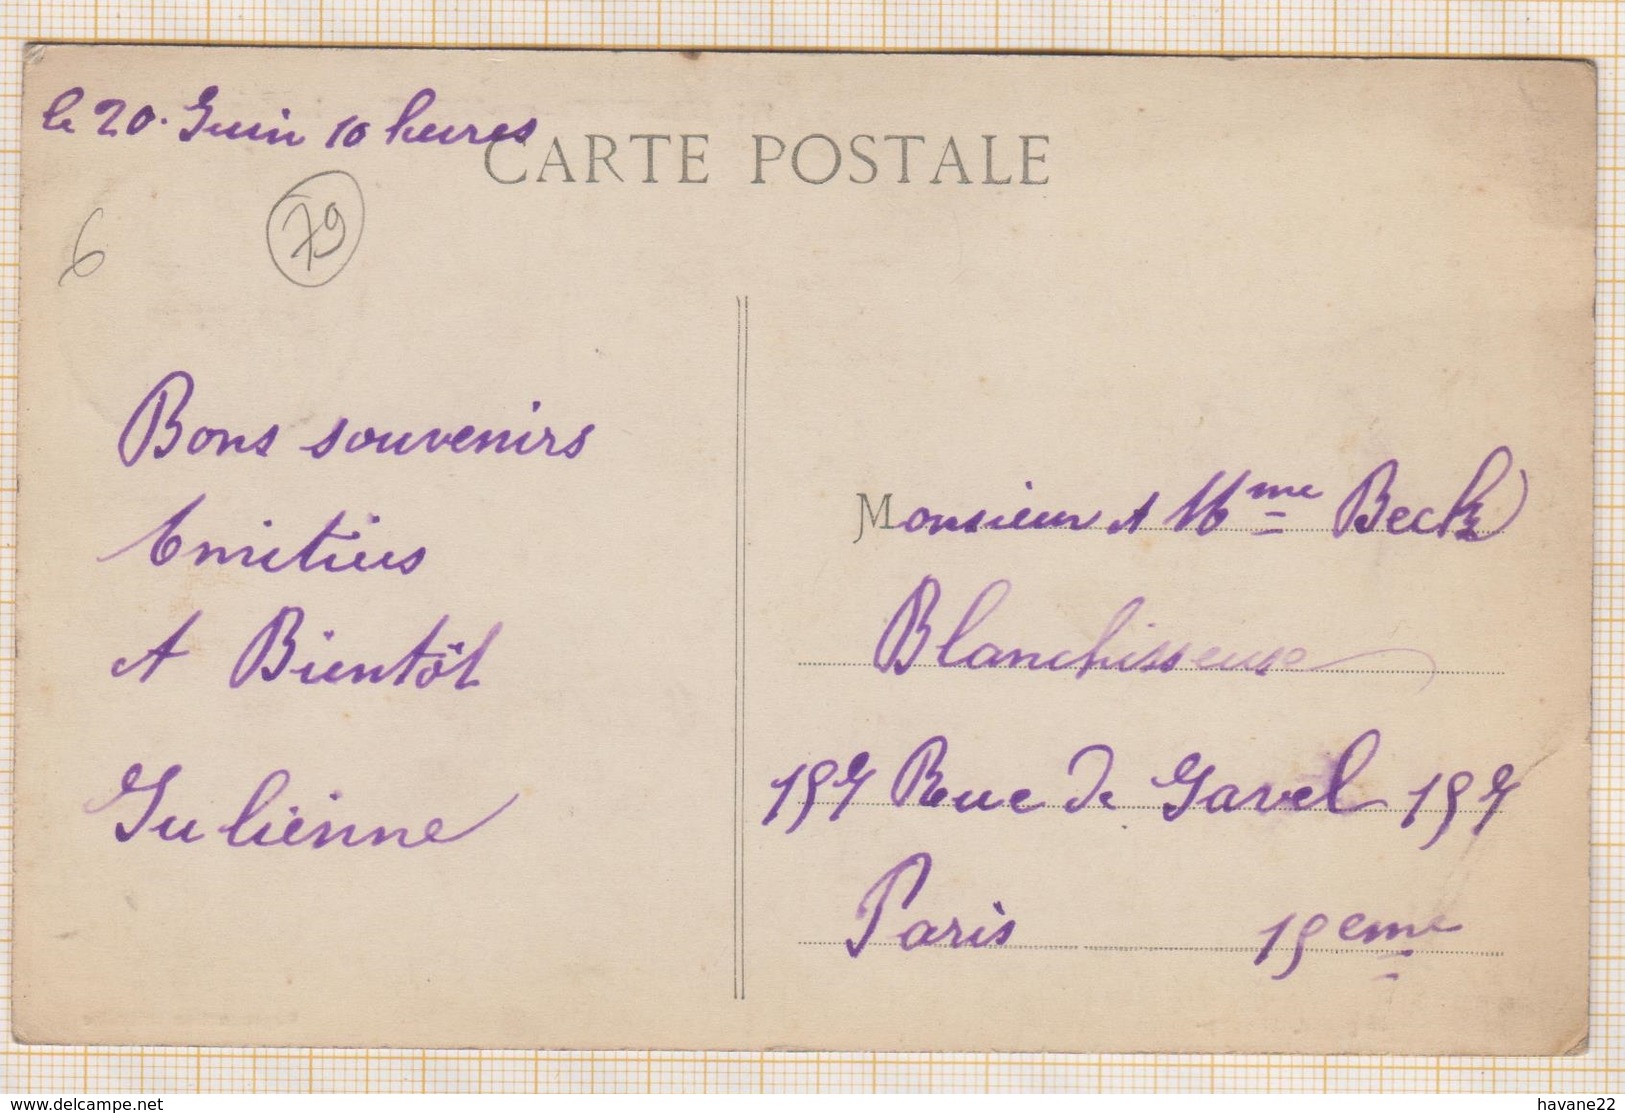 le 20. Juin 10 heures
CARTE POSTALE
6
79
Bons souvenirs
Amitiées
A Bientôt
Julienne
Monsieur et Mme Beck
Blanchisseuse
157 Rue de Javel 157
Paris 15eme
www.delcampe.net
havane22